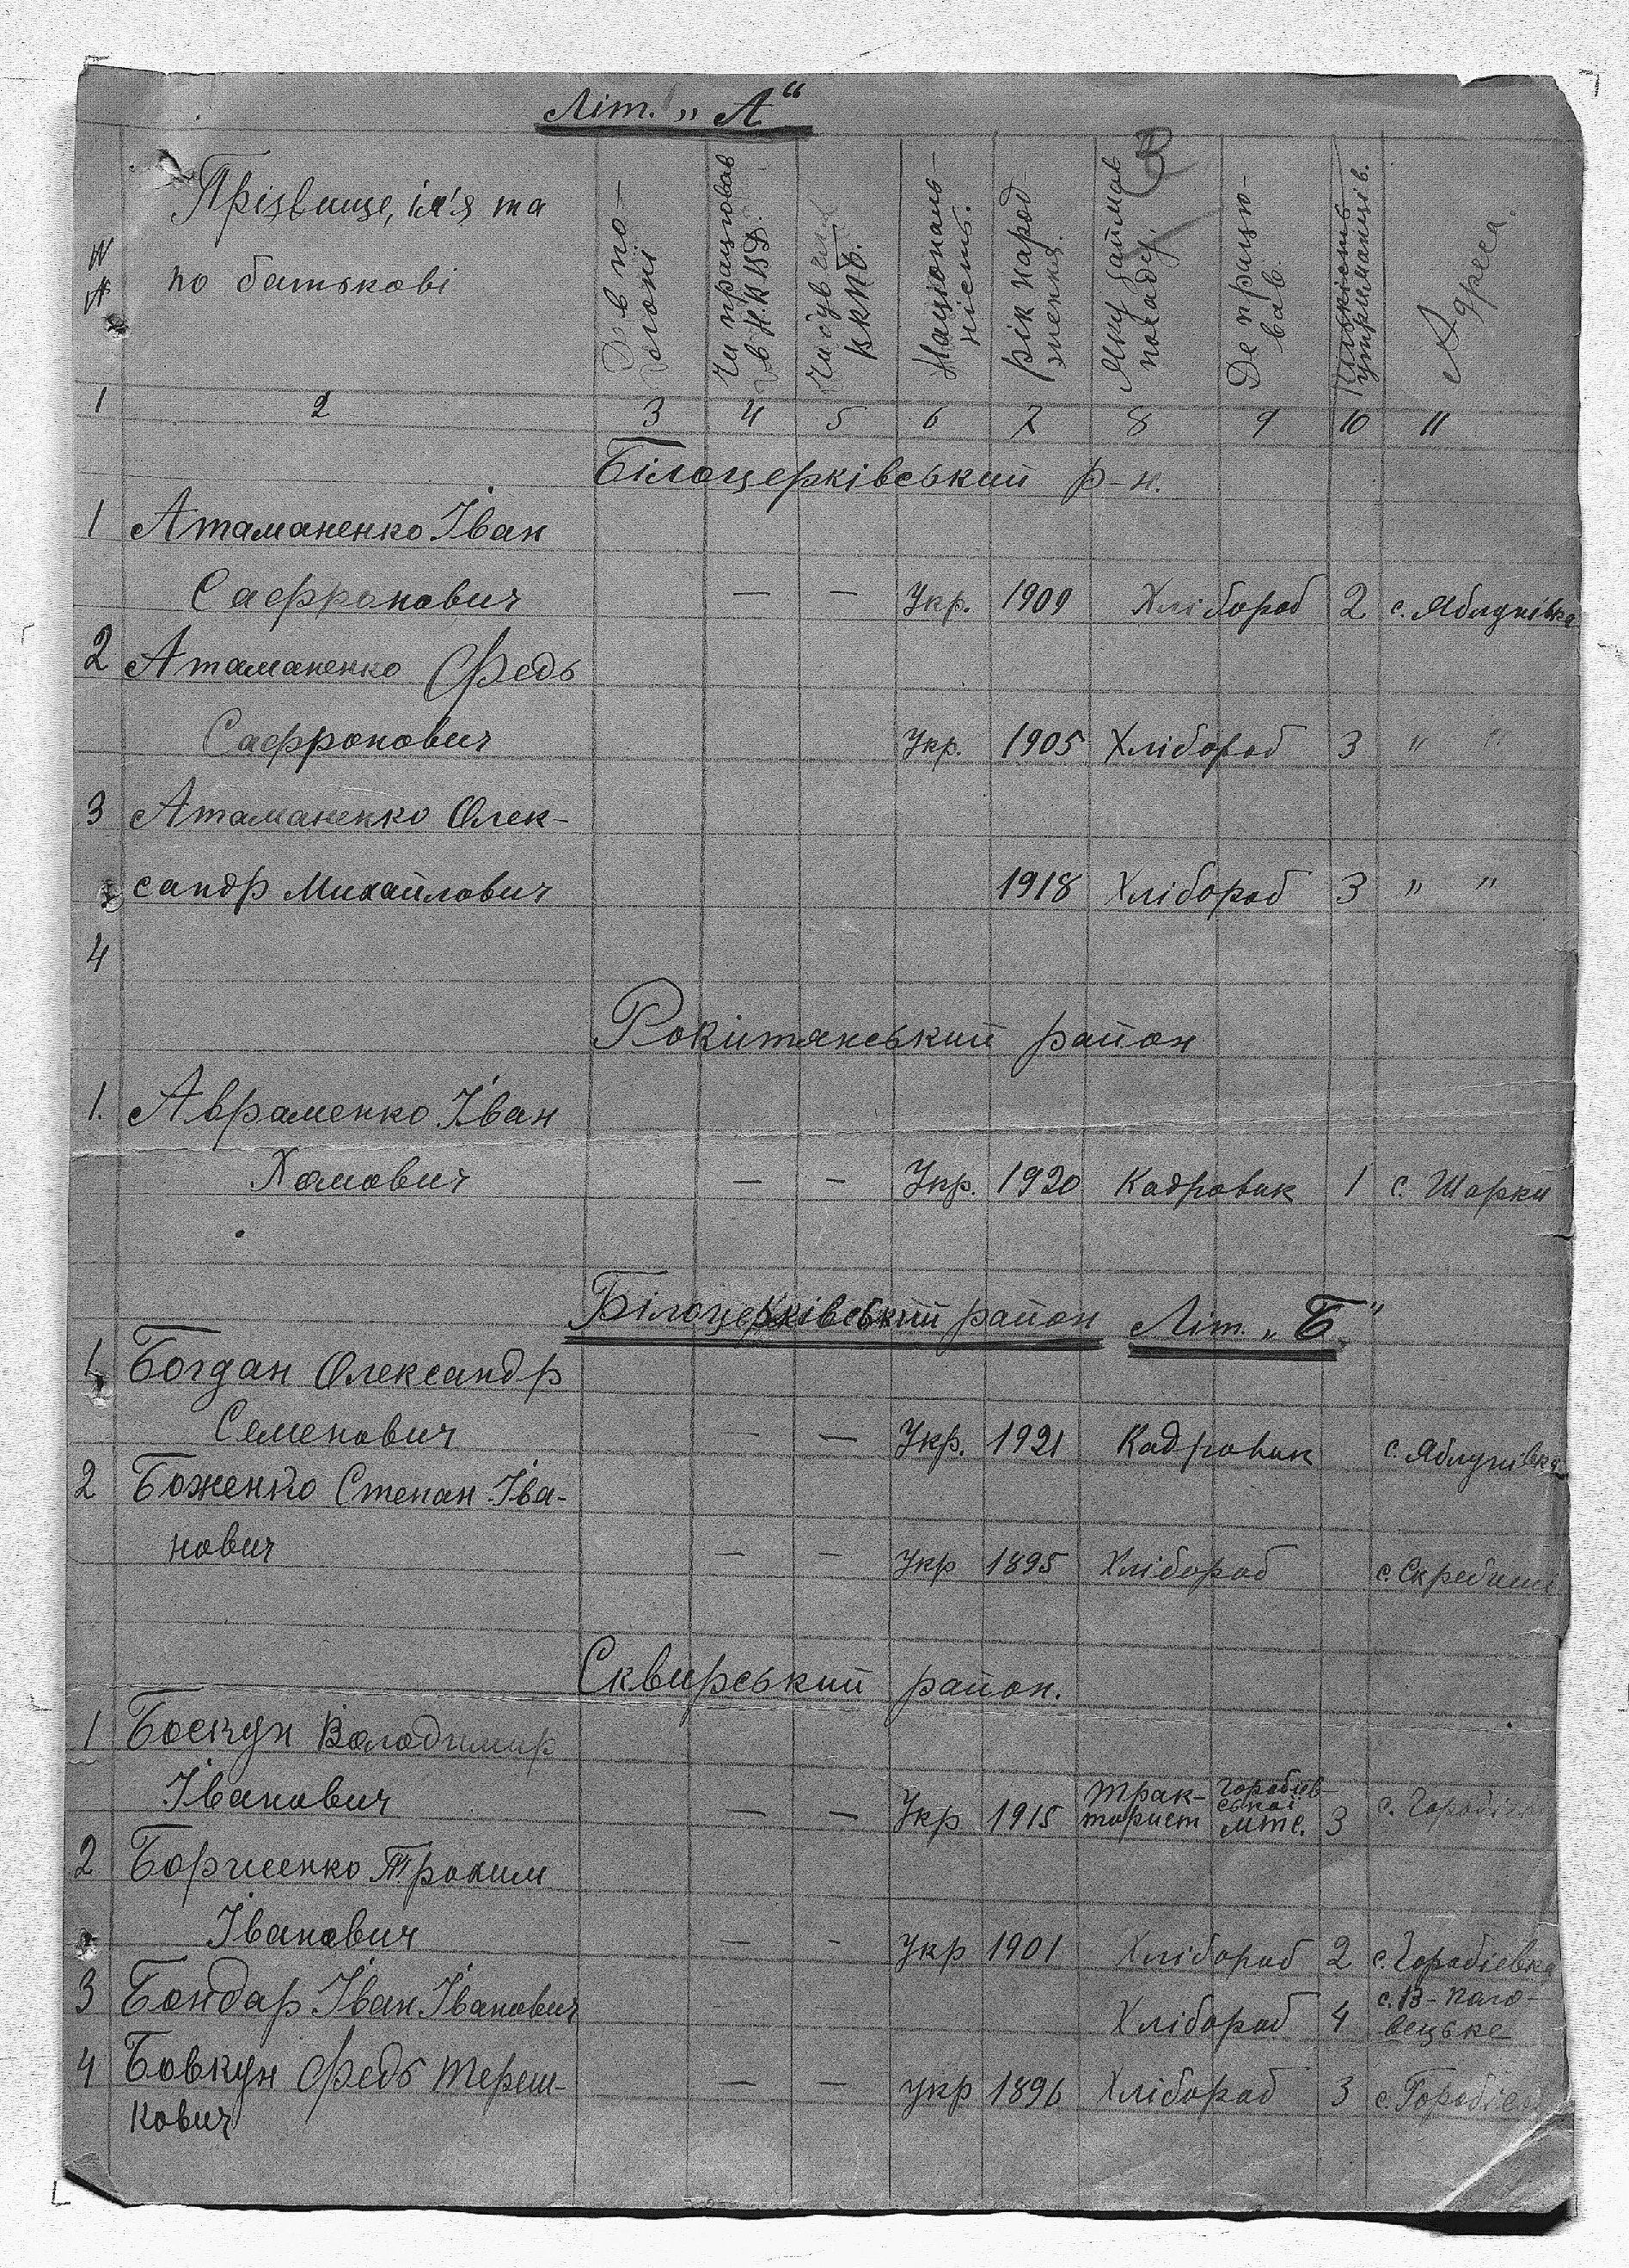 Літ. „А“
№№
Прізвище, ім'я та
по батькові
Чи працював
в Н.К.В.Д.
Чи був
ВКПб.
Національ-
ність.
Рік народ-
ження.
Яку займав
посаду.
Де працю-
вав
Кількість
утриманців.
Адреса.
1 2 3 4 5 6 7 8 9 10 11
Білоцерківський р-н.
1 Атаманенко Іван
Сафронович — — Укр. 1909 Хлібороб 2 с. Яблунівка
2 Атаманенко Федь
Сафронович Укр. 1905 Хлібороб 3 " "
3 Атаманенко Олек-
сандр Михайлович 1918 Хлібороб 3 " "
4
Рокитянський район
1. Авраменко Іван
Хомович — — Укр. 1920 Кадровик 1 с. Шарки
Білоцерківський район Літ. „Б“
1 Богдан Олександр
Семенович — — Укр. 1921 Кадровик с. Яблунівка
2 Боженко Степан Іва-
нович — — Укр 1895 Хлібороб с. Скребиші
Сквирський район.
1 Володимир
Іванович — — Укр 1915 Трак-
торист Горобіїв-
ської
мтс. 3 с.
2 Борисенко Трохим
Іванович — - Укр 1901 Хлібороб 2 с. Горобіевка
3 Бондар Іван Іванович Хлібороб 4 с. В-Поло-
вецьке
4 Бовкун Федь Тереш-
кович — — укр 1896 Хлібороб 3 с.